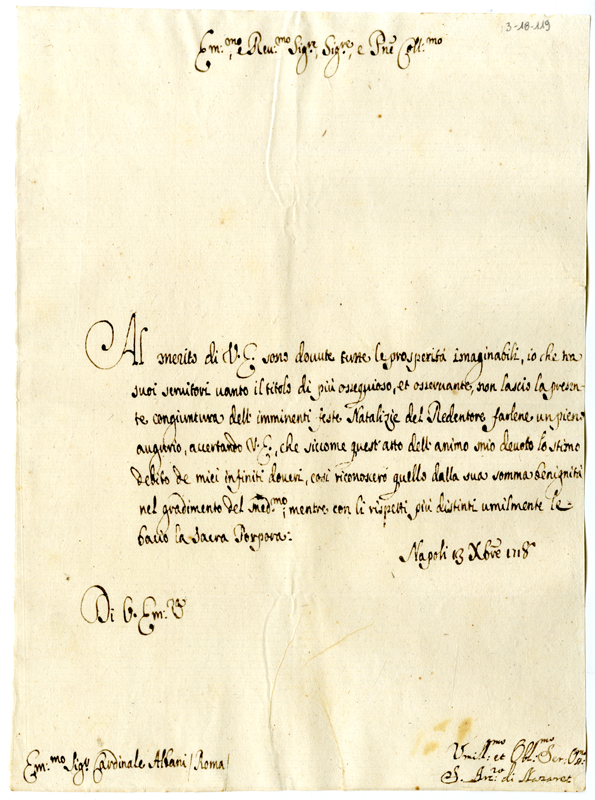 3-18-119
Em:mo, e Rev:mo Sigre, Sigre, e Pne Coll:mo
Al merito di V. E. sono dovute tutte le prosperità imaginabili, io che tra
suoi servitori vanto il titolo di più ossequioso, et osservante, non lascio la presen-
te congiuntura dell' imminenti feste Natalizie del Redentore farlene un pieno
augurio, accertando V. E., che siccome quest' atto dell' animo mio devoto lo stimo
debito de miei infiniti doveri, così riconoscerò quello dalla sua somma benignità
nel gradimento del med:mo; mentre con li rispetti più distinti umilmente le
bacio la Sacra Porpora:
Napoli 13 Xbre 1718
Di V. Em: Va
Em:mo Sigr Cardinale Albani / Roma /
Umill:mo et Obl:mo Ser:
S. Arc:vo di Nazaret